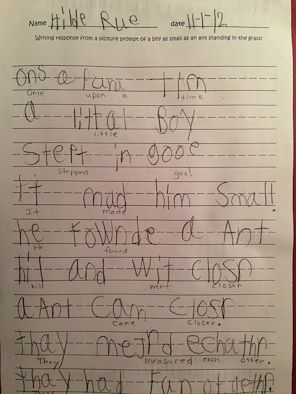 Name Hilde Rue date 11-1-12
Writing response from a picture prompt of a boy as small as an ant standing in the grass
ons a fam tim
Once upon a time
a littal Boy
little
Stept in gooe
Stepped goo
It mad him Small.
It made
he fownde a Ant
He found
hil and wit closr
hill went closer
a Ant Cam Closr
Came Closer.
thay mejrd echathr
They measured each other.
thay had fun